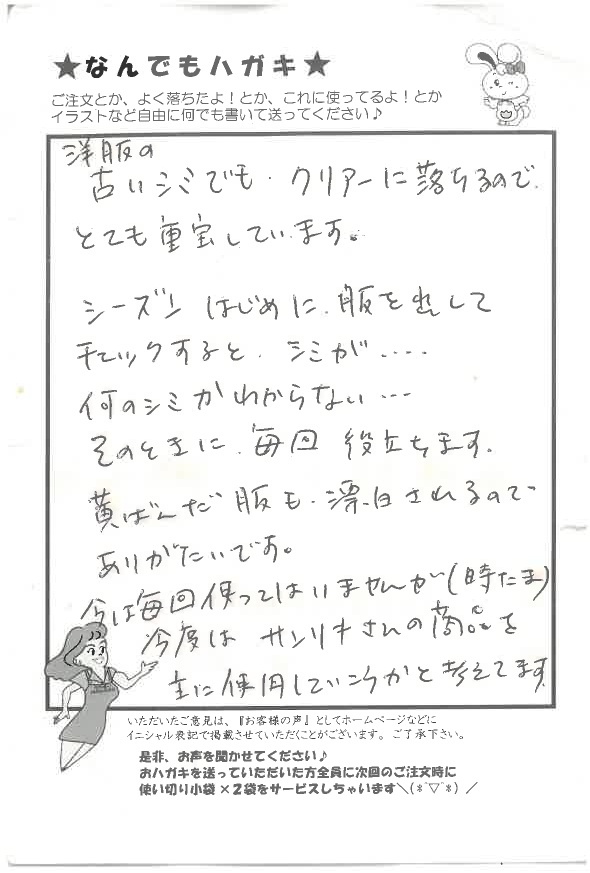 ★なんでもハガキ★
ご注文とか、よく落ちたよ！とか、これに使ってるよ！とか
イラストなど自由に何でも書いて送ってください♪
洋服の
古いシミでも、クリアーに落ちるので、
とても重宝しています。
シーズン はじめに、服を出して
チェックすると、シミが....
何のシミかわからない...
そのときに、毎回 役立ちます。
黄ばんだ服も、漂白されるので
ありがたいです。
今は毎回使ってはいませんが(時たま)
今度は サンリキさんの商品を
主に使用していこうかと考えてます
いただいたご意見は、『お客様の声』としてホームページなどに
イニシャル表記で掲載させていただくことがございます。ご了承下さい。
是非、お声を聞かせてください♪
おハガキを送っていただいた方全員に次回のご注文時に
使い切り小袋×２袋をサービスしちゃいます＼(*´▽`*)／